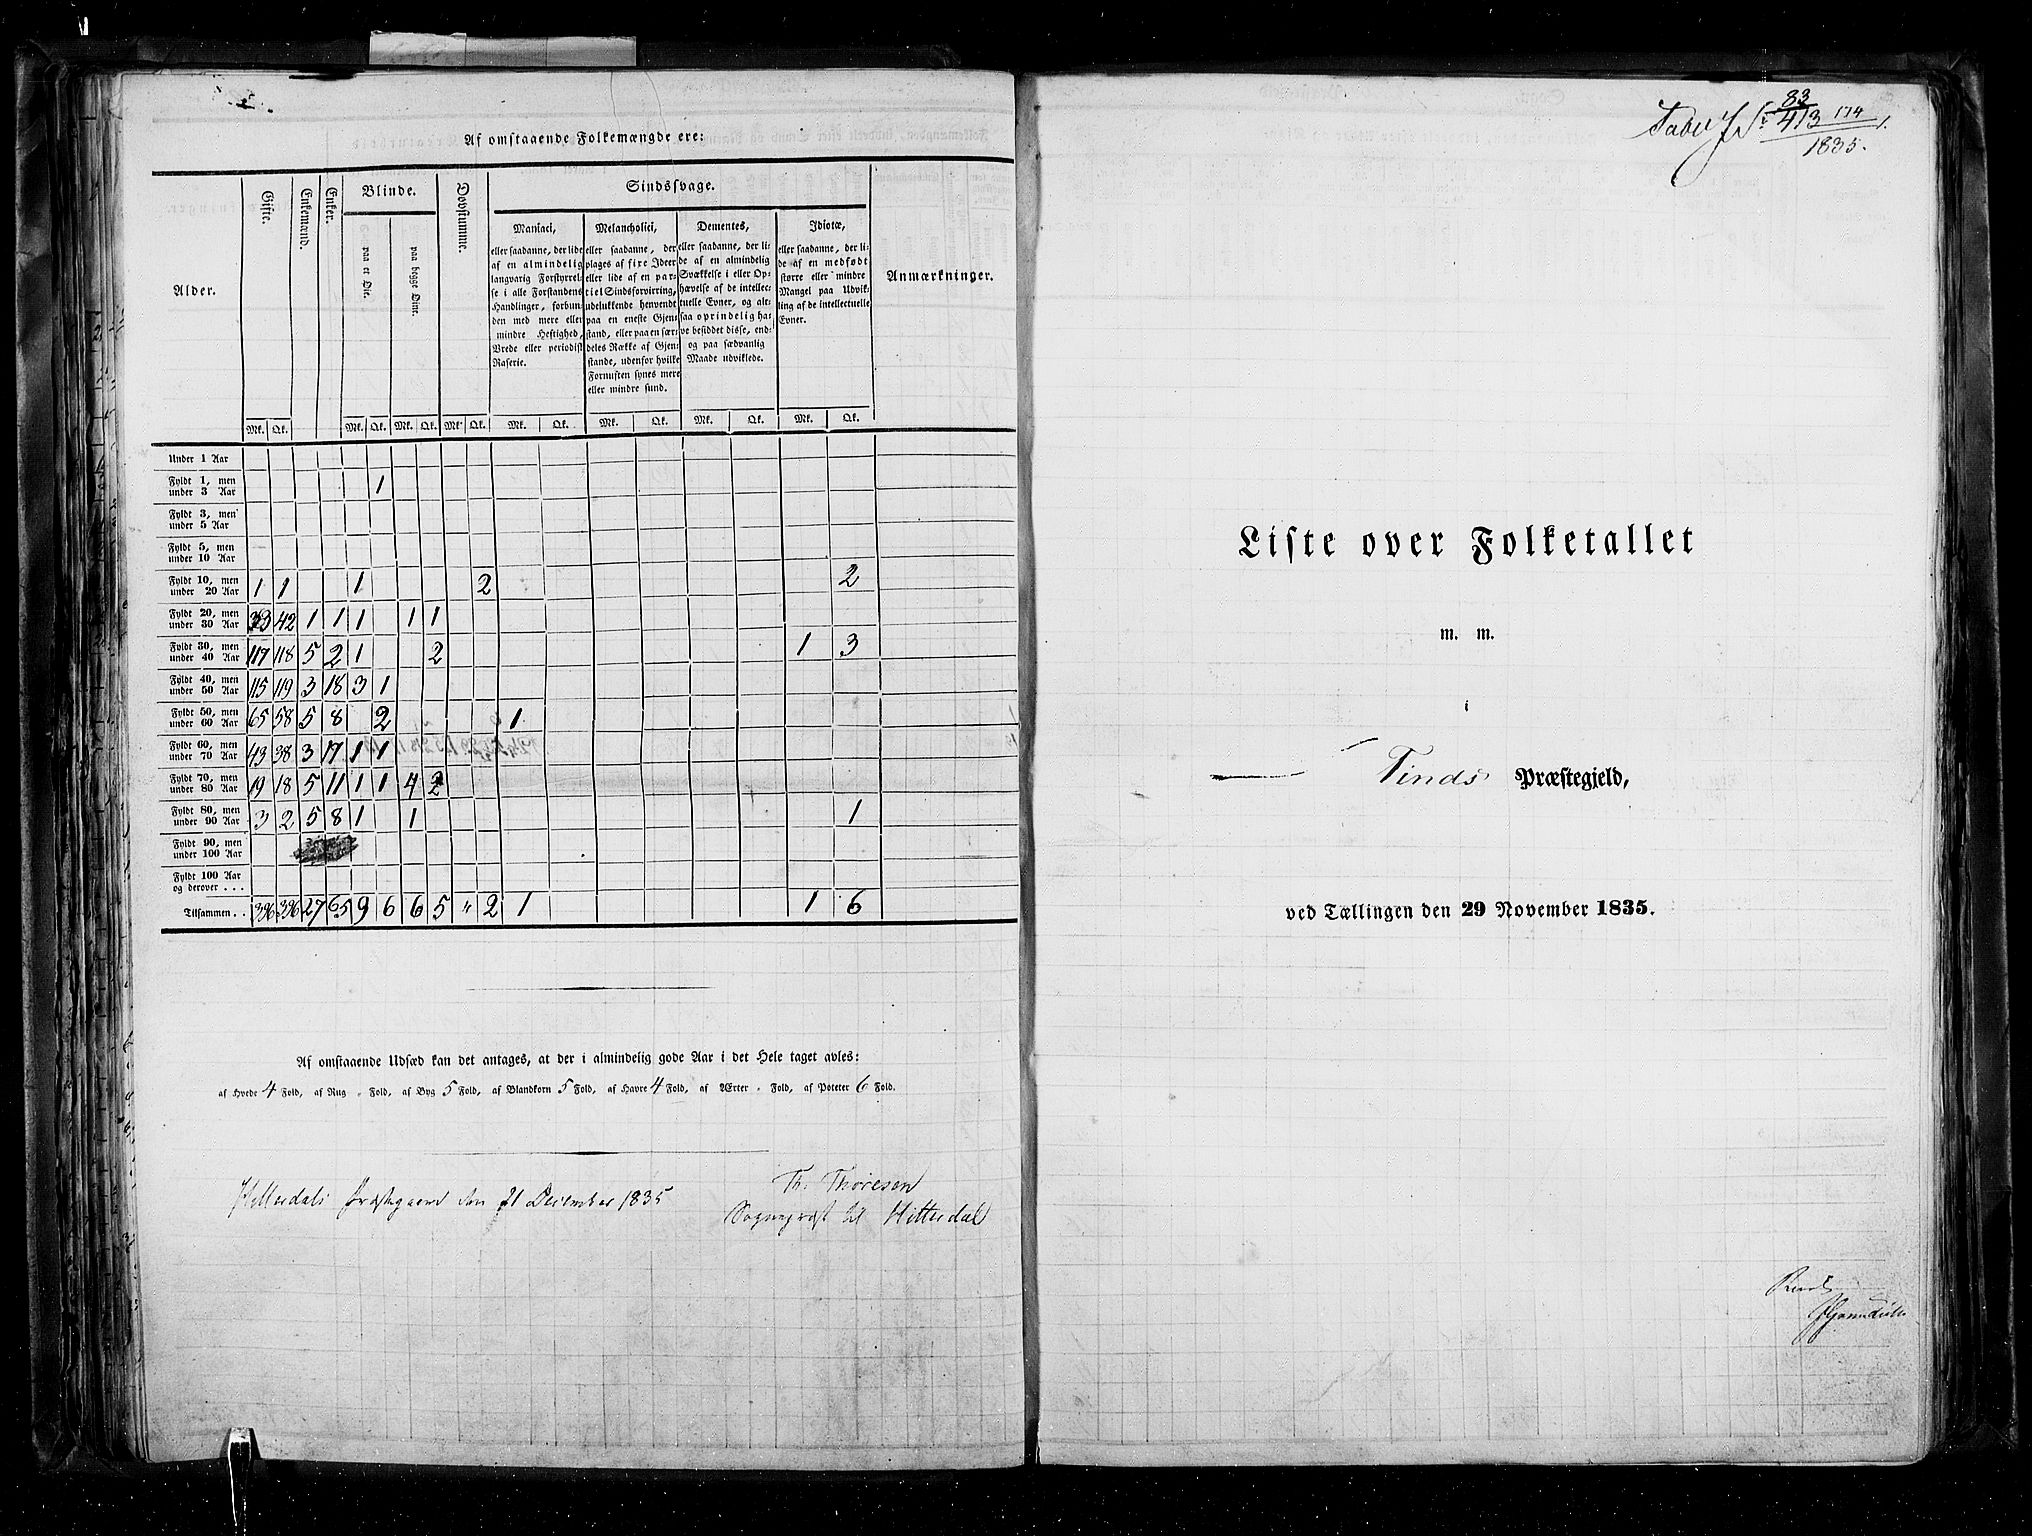 Af omstaaende Folkemængde ere:
Alder.
Gifte.
Enkemænd.
Enker.
Blinde.
paa et Øie.
paa begge Øine.
Døvstumme.
Sindssvage.
Maniaci,
eller saadanne, der lide
af en almindelig
langvarig Forstyrrel-
se i alle Forstandens
Handlinger, forbun-
den med mere eller
mindre Heftighed,
Vrede eller periodisk
Raserie.
Melancholici,
eller saadanne, der
plages af fire Ideer
eller lide af en par-
tiel Sindsforvirring,
udelukkende henvendt
paa en eneste Gjen-
stand, eller paa en sær-
deles Række af Gjen-
stande, udenfor hvilke
Fornuften synes mere
eller mindre sund.
Dementes,
eller saadanne, der li-
de af en almindelig
Svækkelse i eller Op-
hævelse af de intellec-
tuelle Evner, og alt-
saa oprindelig ha-
ve besiddet disse, end-
og paa sædvanlig
Maade udviklede.
Idiotæ,
eller saadanne, der li-
de af en medfødt
større eller mindre
Mangel paa Udvik-
ling af de intellectuelle
Evner.
Anmærkninger.
Mk. Qk. Mk. Qk. Mk. Qk. Mk. Qk. Mk. Qk. Mk. Qk. Mk. Qk. Mk. Qk.
Under 1 Aar
Fyldt 1, men
under 3 Aar 1
Fyldt 3, men
under 5 Aar
Fyldt 5, men
under 10 Aar
Fyldt 10, men
under 20 Aar 1 1 1 2 2
Fyldt 20, men
under 30 Aar 33 42 1 1 1 1 1
Fyldt 30, men
under 40 Aar 117 118 5 2 1 2 1 3
Fyldt 40, men
under 50 Aar 115 119 3 18 3 1
Fyldt 50, men
under 60 Aar 65 58 5 8 2 1
Fyldt 60, men
under 70 Aar 43 38 3 17 1 1
Fyldt 70, men
under 80 Aar 19 18 5 11 1 1 4 2
Fyldt 80, men
under 90 Aar 3 2 5 8 1 1 1
Fyldt 90, men
under 100 Aar
Fyldt 100 Aar
og derover . . .
Tilsammen . . 396 396 27 65 9 6 6 5 " 2 1 1 6
Af omstaaende Udsæd kan det antages, at der i almindelig gode Aar i det Hele taget avles:
af Hvede 4 Fold, af Rug Fold, af Byg 5 Fold, af Blandkorn 5 Fold, af Havre 4 Fold, af Ærter Fold, af Poteter 6 Fold.
Hitterdals Præstegaard den 21 December 1835
Th. Thoresen
Sognepræst til Hitterdal
83
413 174
1835.
Liste over Folketallet
m. m.
i
Tinds Præstegjeld,
ved Tællingen den 29 November 1835.